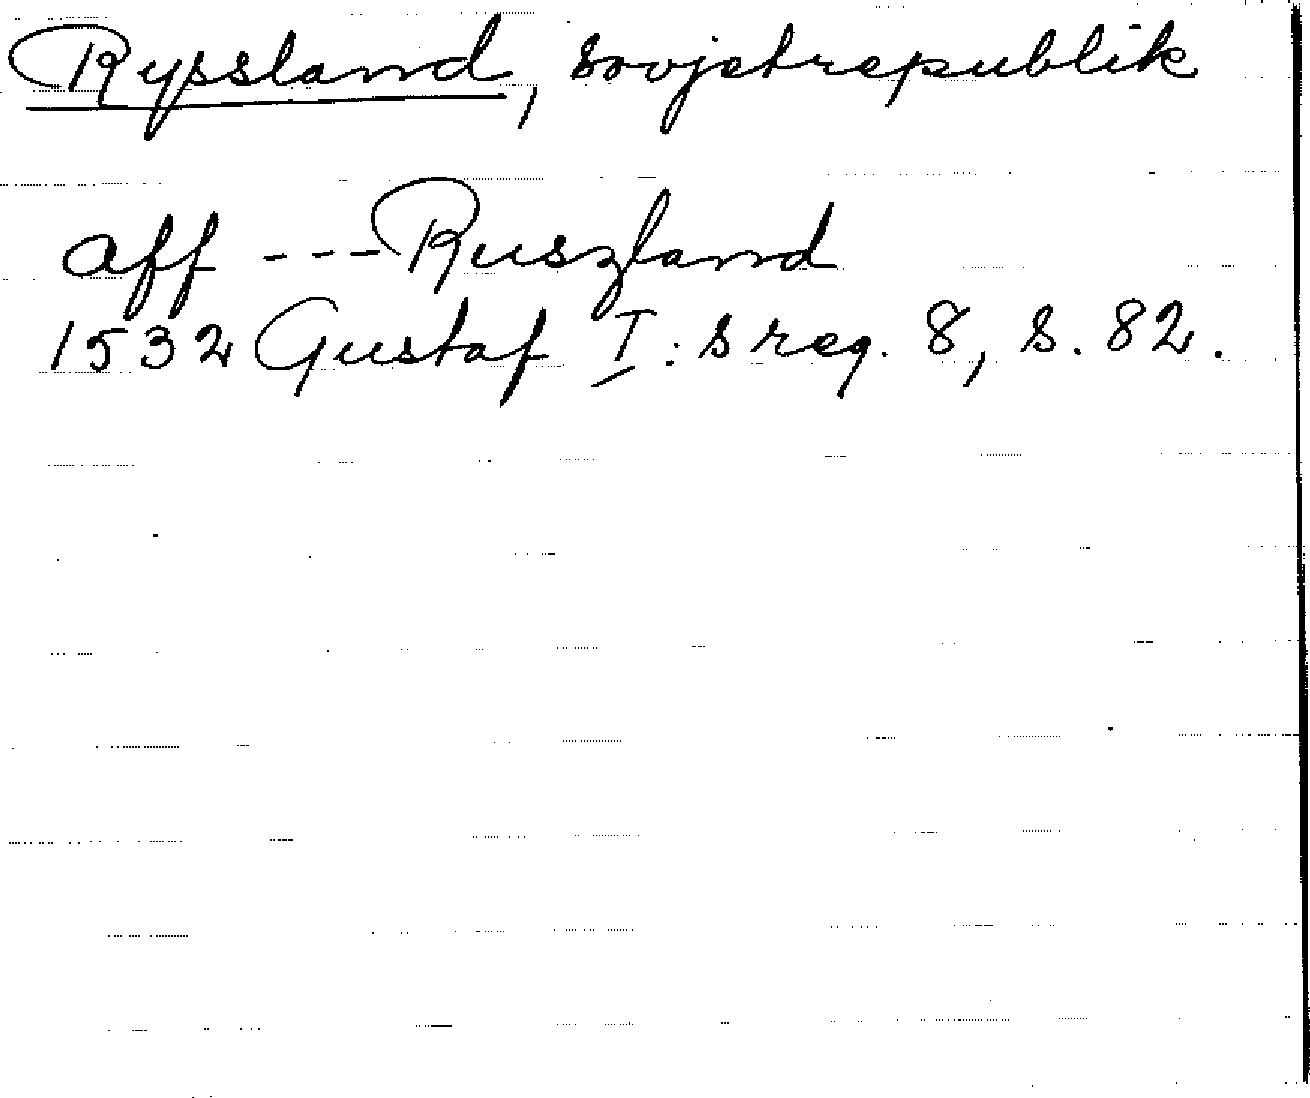 Ryssland, Sovjetrepublik
aff --- Ruszland
1532 Gustaf I:s reg. 8, s. 82.